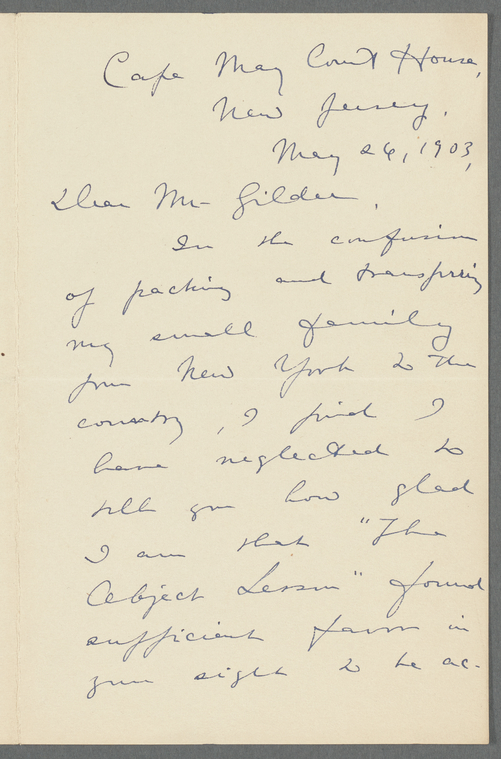 Cape May Court House,
New Jersey.
May 26, 1903,
Dear Mr. Gilder,
In the confusion
of packing and transferring
my small family
from New York to the
country, I find I
have neglected to
tell you how glad
I am that "The
Object Lesson" found
sufficient favor in
your sight to be ac-